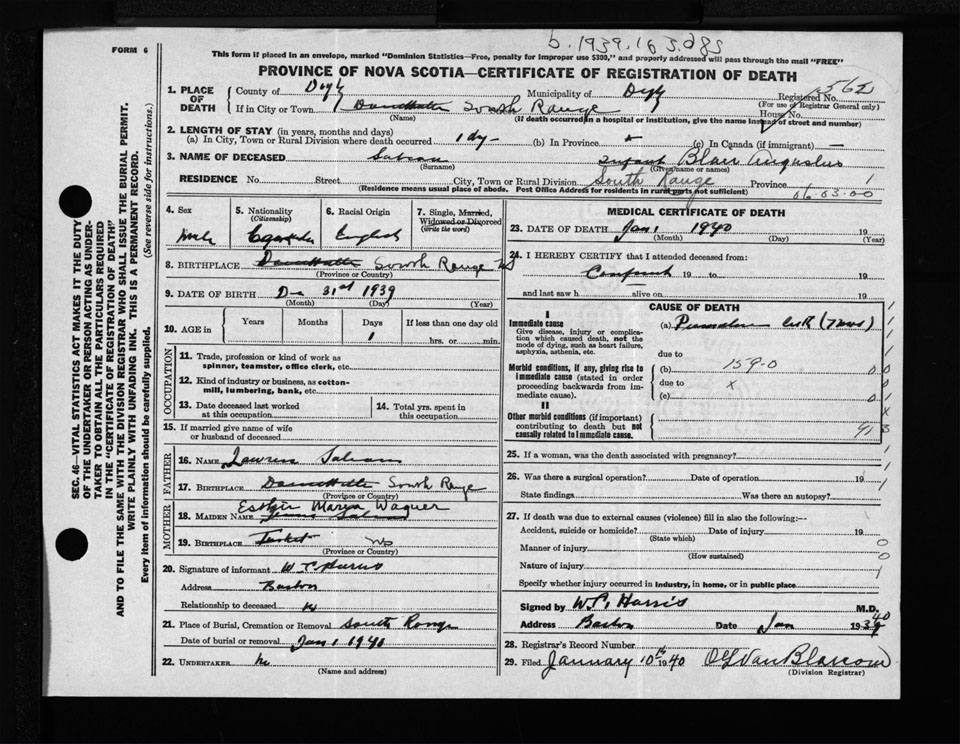 FORM 6
b. 1939. 163285
This form if placed in an envelope, marked "Dominion Statistics—Free, penalty for improper use $300," and properly addressed will pass through the mail "FREE"
PROVINCE OF NOVA SCOTIA—CERTIFICATE OF REGISTRATION OF DEATH
1. PLACE OF DEATH
County of Digby Municipality of Digby Registered No.
(For use of Registrar General only)
If in City or Town South Range House No.
(Name) (If death occurred in a hospital or institution, give the name instead of street and number)
2. LENGTH OF STAY (in years, months and days)
(a) In City, Town or Rural Division where death occurred 1 dy- (b) In Province (c) In Canada (if immigrant) —
3. NAME OF DECEASED infant Blair Augustus
(Surname) (Given name or names)
RESIDENCE No. Street City, Town or Rural Division South Range Province 1
(Residence means usual place of abode. Post Office Address for residents in rural parts not sufficient)
06.03.00
4. Sex
male
5. Nationality
(Citizenship)
6. Racial Origin
English
7. Single, Married, Widowed or Divorced
(write the word)
8. BIRTHPLACE South Range NS
(Province or Country)
9. DATE OF BIRTH 31st 1939
(Month) (Day) (Year)
10. AGE in
Years Months Days If less than one day old
1 hrs. or min.
OCCUPATION
11. Trade, profession or kind of work as
spinner, teamster, office clerk, etc.
12. Kind of industry or business, as cotton-
mill, lumbering, bank, etc.
13. Date deceased last worked
at this occupation
14. Total yrs. spent in
this occupation
15. If married give name of wife
or husband of deceased
FATHER
16. NAME
17. BIRTHPLACE South Range
(Province or Country)
MOTHER
Esther Marion Wagner
18. MAIDEN NAME
19. BIRTHPLACE Tusket NS
(Province or Country)
20. Signature of informant
Address Barton
Relationship to deceased
21. Place of Burial, Cremation or Removal South Range
Date of burial or removal Jan 1 1940
22. UNDERTAKER no
(Name and address)
MEDICAL CERTIFICATE OF DEATH
23. DATE OF DEATH Jan 1 1940 19
(Month) (Day) (Year)
24. I HEREBY CERTIFY that I attended deceased from:
19 to 19
and last saw h alive on 19
CAUSE OF DEATH
I
Immediate cause
Give disease, injury or complica-
tion which caused death, not the
mode of dying, such as heart failure,
asphyxia, asthenia, etc.
(a) Premature birth (7 mos)
due to
Morbid conditions, if any, giving rise to
immediate cause (stated in order
proceeding backwards from im-
mediate cause).
(b) 159-0
due to x
(c)
II
Other morbid conditions (if important)
contributing to death but not
causally related to immediate cause.
25. If a woman, was the death associated with pregnancy?
26. Was there a surgical operation? Date of operation 19
State findings Was there an autopsy?
27. If death was due to external causes (violence) fill in also the following:—
Accident, suicide or homicide? Date of injury 19
(State which)
Manner of injury
(How sustained)
Nature of injury
Specify whether injury occurred in industry, in home, or in public place
Signed by Harris M.D.
Address Barton Date Jan 1940
28. Registrar's Record Number
29. Filed January 10th 1940 Van Blarcom
(Division Registrar)
SEC. 46—VITAL STATISTICS ACT MAKES IT THE DUTY
OF THE UNDERTAKER OR PERSON ACTING AS UNDER-
TAKER TO OBTAIN ALL THE PARTICULARS REQUIRED
IN THE "CERTIFICATE OF REGISTRATION OF DEATH"
AND TO FILE THE SAME WITH THE DIVISION REGISTRAR WHO SHALL ISSUE THE BURIAL PERMIT.
WRITE PLAINLY WITH UNFADING INK. THIS IS A PERMANENT RECORD.
Every item of information should be carefully supplied. (See reverse side for instructions.)